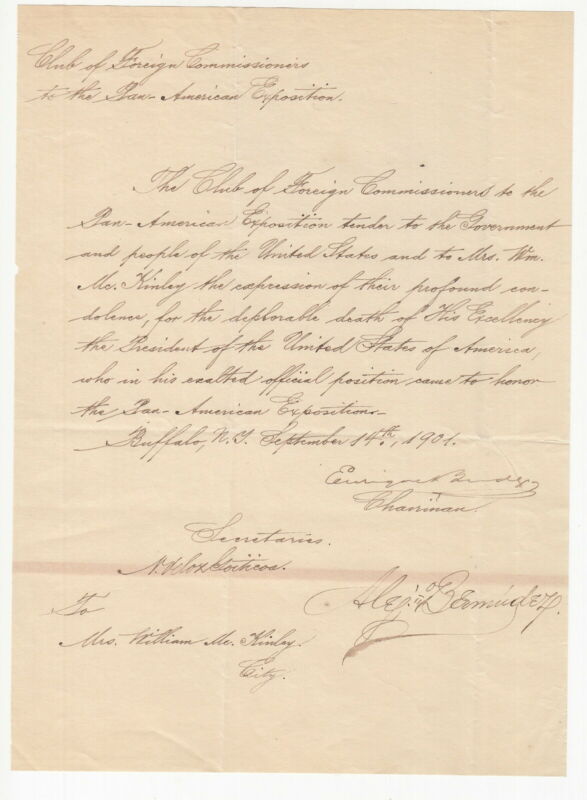 Club of Foreign Commissioners
to the Pan-American Exposition.
The Club of Foreign Commissioners to the
Pan-American Exposition tender to the Government
and people of the United States and to Mrs. Wm.
Mc. Kinley the expression of their profound con-
dolence, for the deplorable death of His Excellency
the President of the United States of America,
who in his exalted official position came to honor
the Pan-American Exposition.
Buffalo, N.Y. September 14th, 1901.
Chairman.
Secretaries.
N. Veloz Goiticoa.
Alej. Bermúdez.
To
Mrs. William Mc. Kinley.
City.